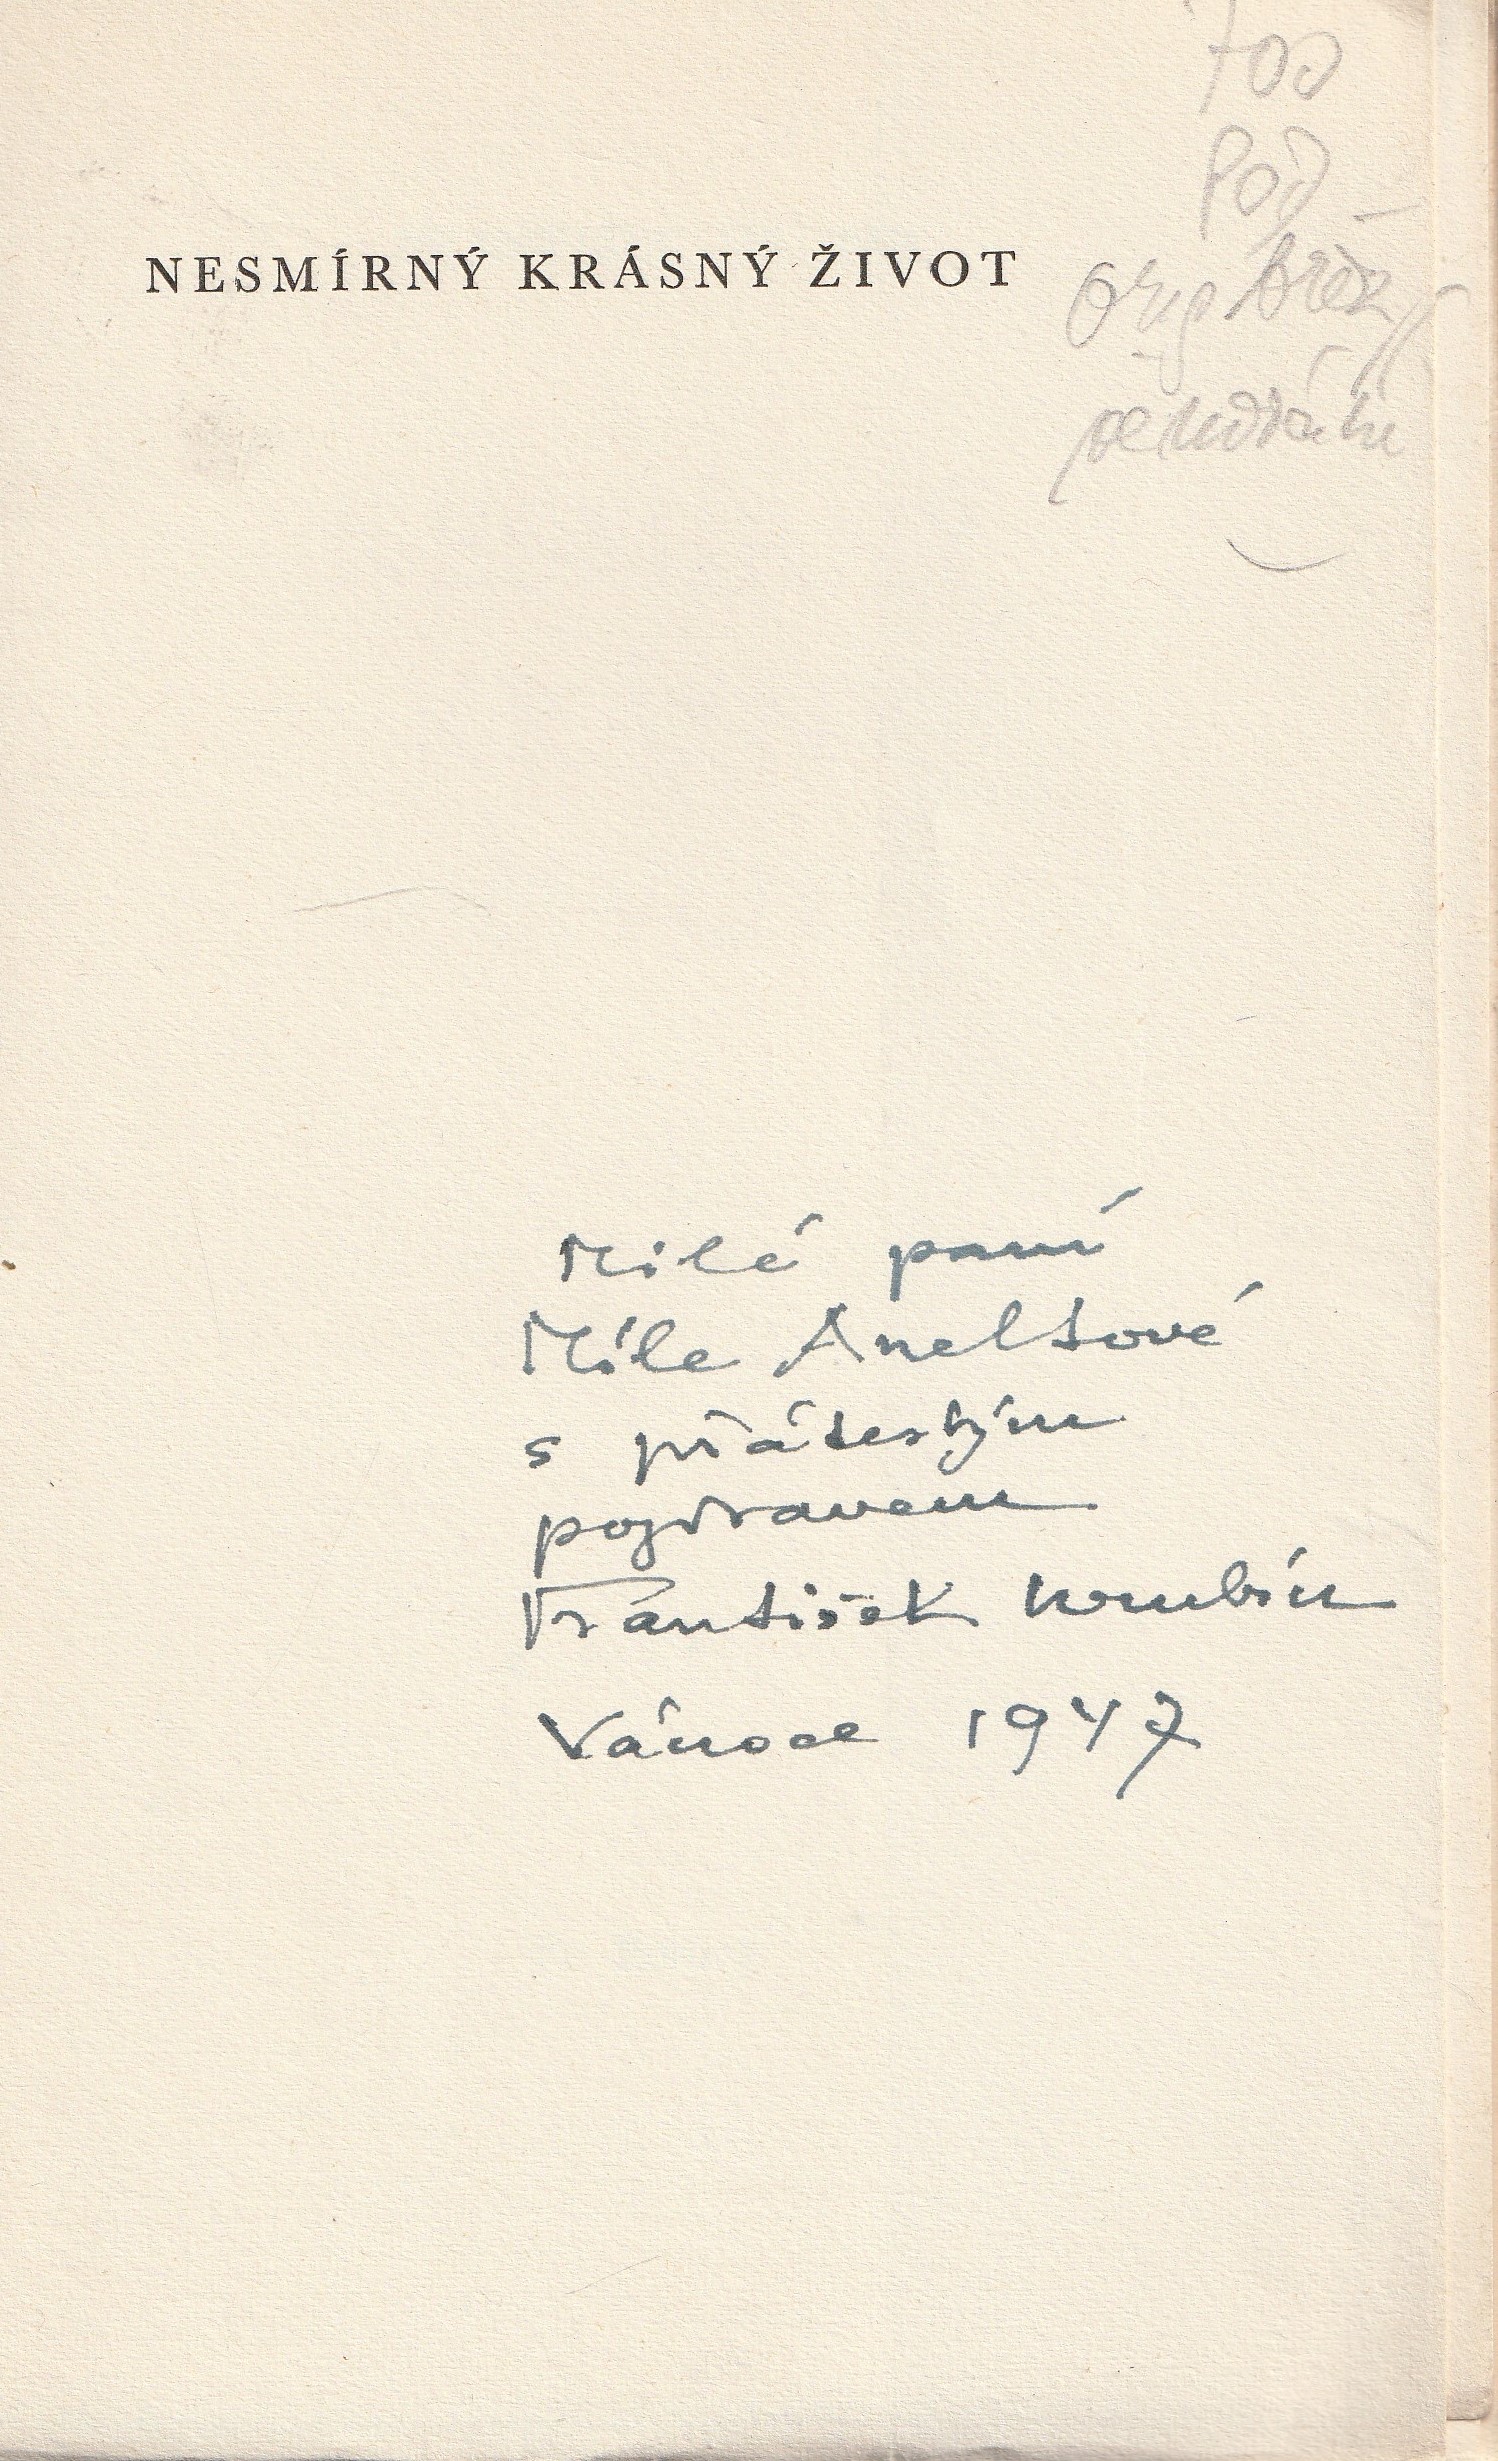 700
Pod
NESMÍRNÝ KRÁSNÝ ŽIVOT
Milé paní
Míle Aneltové
s přátelským
pozdravem
František Hrubín
Vánoce 1947